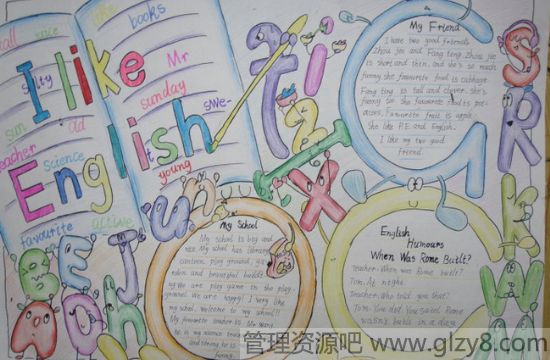 I like English
books
like
nice
salty
Mr
sunday
sun
old
swe-
teacher
Science
its
young
favourite
active
My Friend
I have two good friends
Zhou jie and Fang ting Zhou jie
is short and thin, and he's so much
funny she favourite food is cabbage.
Fang ting is tall and clever, she's
funny too she favourite food is pot-
atoes, Favourite fruit is apple.
she like P.E and English.
I like my two good
Friend.
My School
My school is big and
nice My school has library
canteen, play ground, gar-
eden and beautiful buildi-
ng We are play game in the play
ground. We are happy. I very like
my school, welcome to my school!!!
My favourite teacher is Mr
he is my science teacher
and strong, he is
funny.
English
Humours
When Was Rome Built?
Teacher: When was Rome built?
Tom: At night.
Teacher: Who told you that?
Tom: You did. You said Rome
wasn't built in a day.
B E J
A O H
S R K W
X
管理资源吧 www.glzy8.com